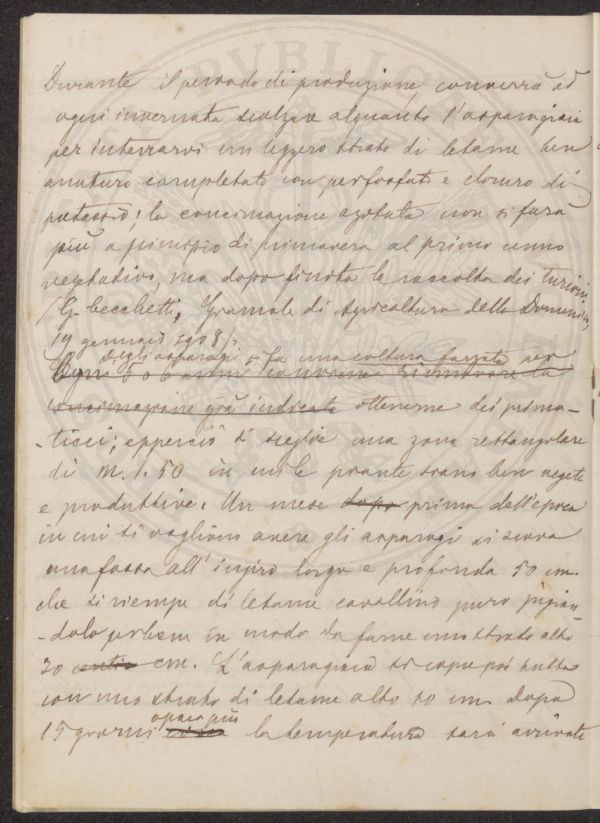 Durante il periodo di produzione, converrà ad
ogni invernata scalzare alquanto l'asparagiaia
per interrarvi un leggero strato di letame ben
maturo completato con perfosfati e cloruro di
potassio; la concimazione azotata non si farà
più a principio di primavera al primo cenno
vegetativo, ma dopo finita la raccolta dei turioni
(G. Becchetti, Giornale di Agricoltura della Domenica,
19 gennaio 1908).
Degli asparagi si fa una coltura forzata per
Ogni 5 o 6 anni conviene rinnovare la
concimazione già indicata ottenerne dei prima-
-ticci; epperciò si sceglie una zona rettangolare
di m. 1.50 in cui le piante siano ben vegete
e produttive. Un mese dopo prima dell'epoca
in cui si vogliono avere gli asparagi si scava
una fossa all'ingiro larga e profonda 50 cm.
che si riempe di letame cavallino puro pigian-
-dolo perbene in modo da farne uno strato alto
30 cm. L'asparagiaia si copre poi tutta
con uno strato di letame alto 10 cm. Dopo
o poco più
15 giorni la temperatura sarà arrivata